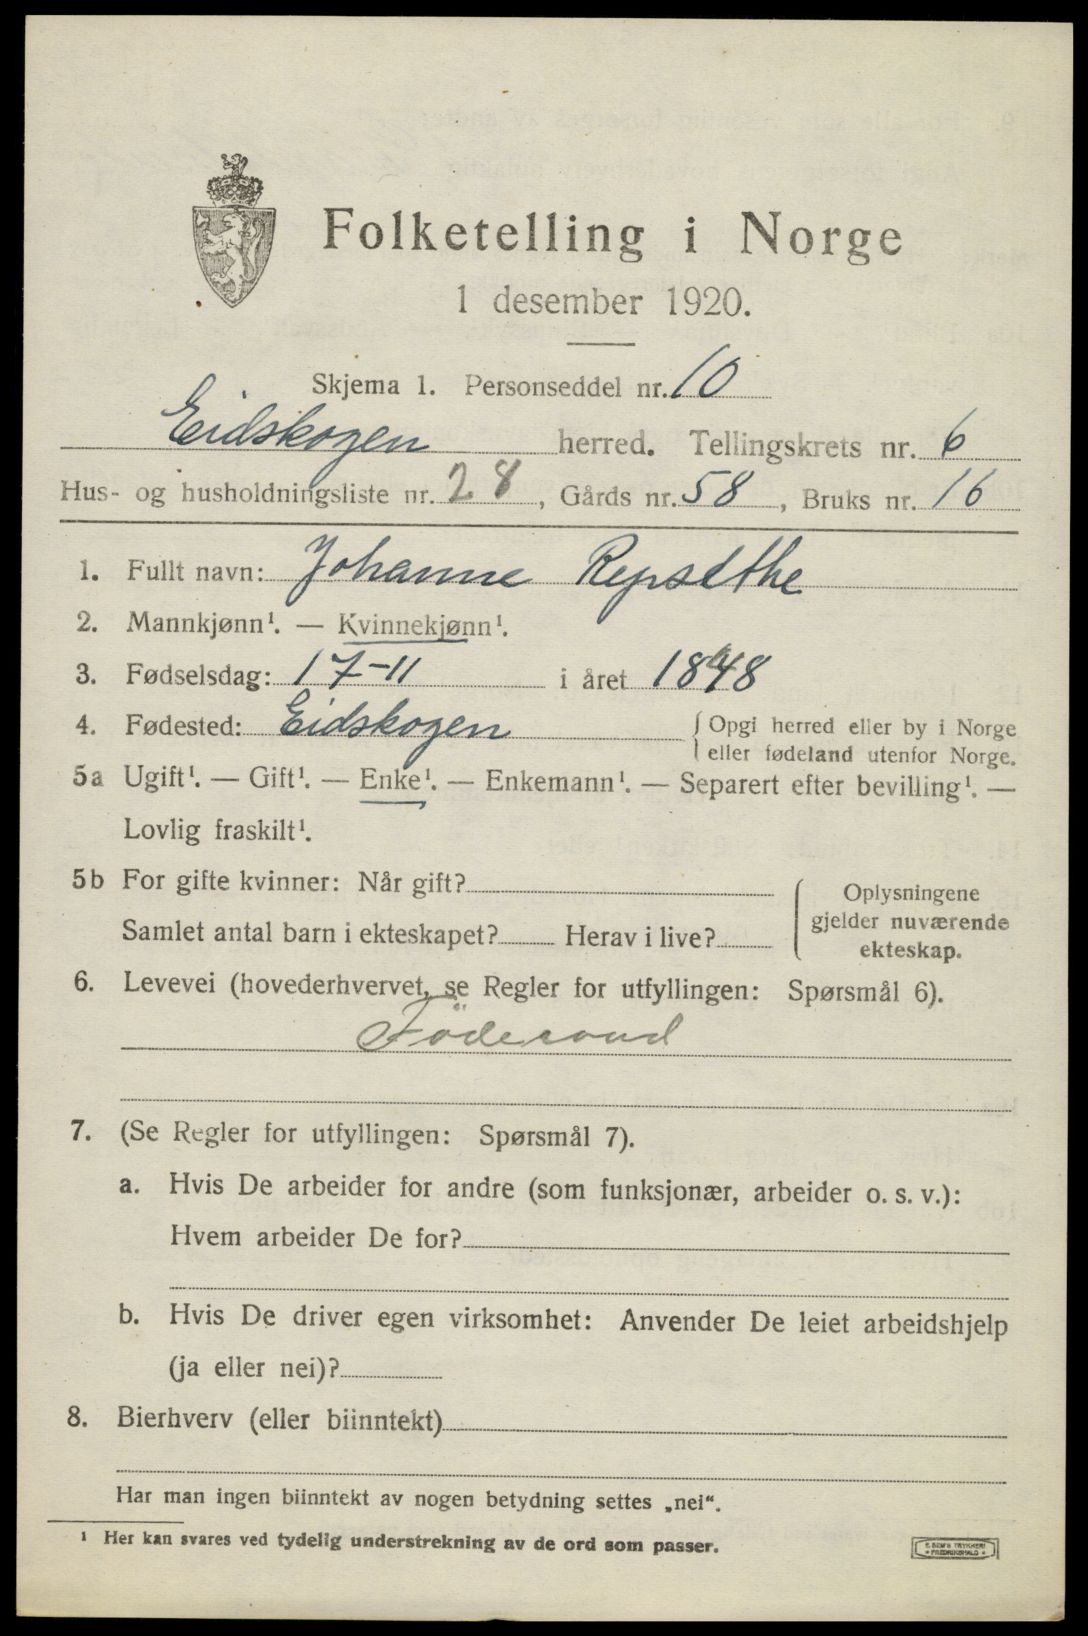 Folketelling i Norge
1 desember 1920.
Skjema 1. Personseddel nr. 10
Eidskogen herred. Tellingskrets nr. 6
Hus- og husholdningsliste nr. 28, Gårds nr. 58, Bruks nr. 16
1. Fullt navn: Johanne Repsethe
2. Mannkjønn¹. — Kvinnekjønn¹.
3. Fødselsdag: 17-11 i året 1848
4. Fødested: Eidskogen {Opgi herred eller by i Norge
eller fødeland utenfor Norge.
5a Ugift¹. — Gift¹. — Enke¹. — Enkemann¹. — Separert efter bevilling¹. —
Lovlig fraskilt¹.
5b For gifte kvinner: Når gift?
Samlet antal barn i ekteskapet? Herav i live?
{Oplysningene
gjelder nuværende
ekteskap.
6. Levevei (hovederhvervet, se Regler for utfyllingen: Spørsmål 6).
Föderaad
7. (Se Regler for utfyllingen: Spørsmål 7).
a. Hvis De arbeider for andre (som funksjonær, arbeider o. s. v.):
Hvem arbeider De for?
b. Hvis De driver egen virksomhet: Anvender De leiet arbeidshjelp
(ja eller nei)?
8. Bierhverv (eller biinntekt)
Har man ingen biinntekt av nogen betydning settes „nei“.
¹ Her kan svares ved tydelig understrekning av de ord som passer.
TRYKKERI
FREDRIKSHALD